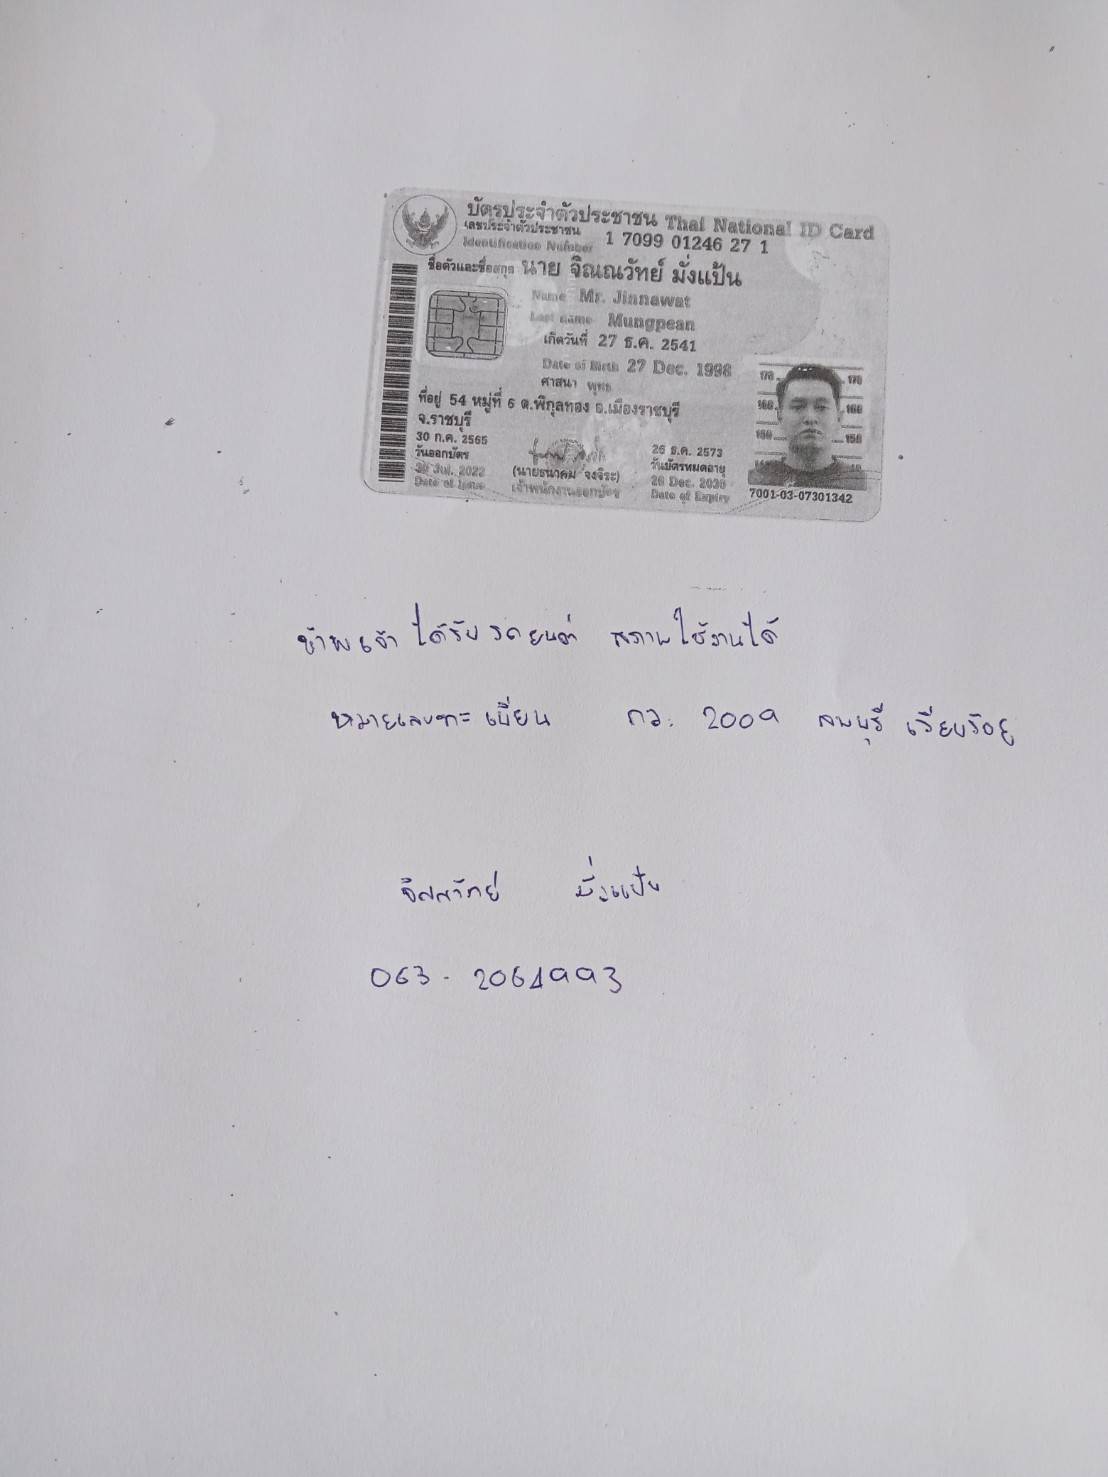 บัตรประจำตัวประชาชน Thai National ID Card
เลขประจำตัวประชาชน
Identification Number 1 7099 01246 27 1
ชื่อตัวและชื่อสกุล นาย จิณณวัทย์ มั่งแป้น
Name Mr. Jinnawat
Last name Mungpean
เกิดวันที่ 27 ธ.ค. 2541
Date of Birth 27 Dec. 1998
ศาสนา พุทธ
ที่อยู่ 54 หมู่ที่ 6 ต.พิกุลทอง อ.เมืองราชบุรี
จ.ราชบุรี
30 ก.ค. 2565
วันออกบัตร
30 Jul. 2022
Date of Issue
(นายธนาคม จงจิระ)
เจ้าพนักงานออกบัตร
26 ธ.ค. 2573
วันบัตรหมดอายุ
26 Dec. 2030
Date of Expiry
170 170
160 160
150 150
7001-03-07301342
ข้าพเจ้า ได้รับ รถยนต์ สภาพใช้งานได้
หมายเลขทะเบียน กว. 2009 ลพบุรี เรียบร้อย
จิณณวัทย์ มั่งแป้น
063-2064993